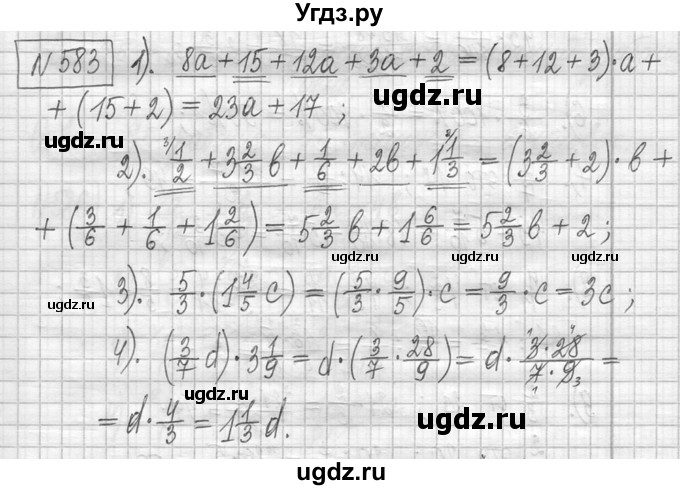 Угдз.ру
№583 1). 8a + 15 + 12a + 3a + 2 = (8+12+3)·a +
+ (15+2) = 23a + 17 ;
ugdz.ru ugdz.ru
2). ³⁾1/2 + 3 2/3 в + 1/6 + 2в + 1 ²⁾1/3 = (3 2/3 + 2)· в +
+ (3/6 + 1/6 + 1 2/6) = 5 2/3 в + 1 6/6 = 5 2/3 в + 2 ;
ugdz.ru ugdz.ru
3). 5/3 · (1 4/5 c) = (5/3 · 9/5)· c = 9/3 · c = 3c ;
ugdz.ru ugdz.ru
4). (3/7 d)· 3 1/9 = d · (3/7 · 28/9) = d · 3·28/7·9 =
= d · 4/3 = 1 1/3 d.
ugdz.ru ugdz.ru
ugdz.ru